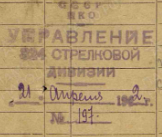 СССР
НКО
УПРАВЛЕНИЕ
324 СТРЕЛКОВОЙ
ДИВИЗИИ
"21" апреля 1942 г.
№ 197